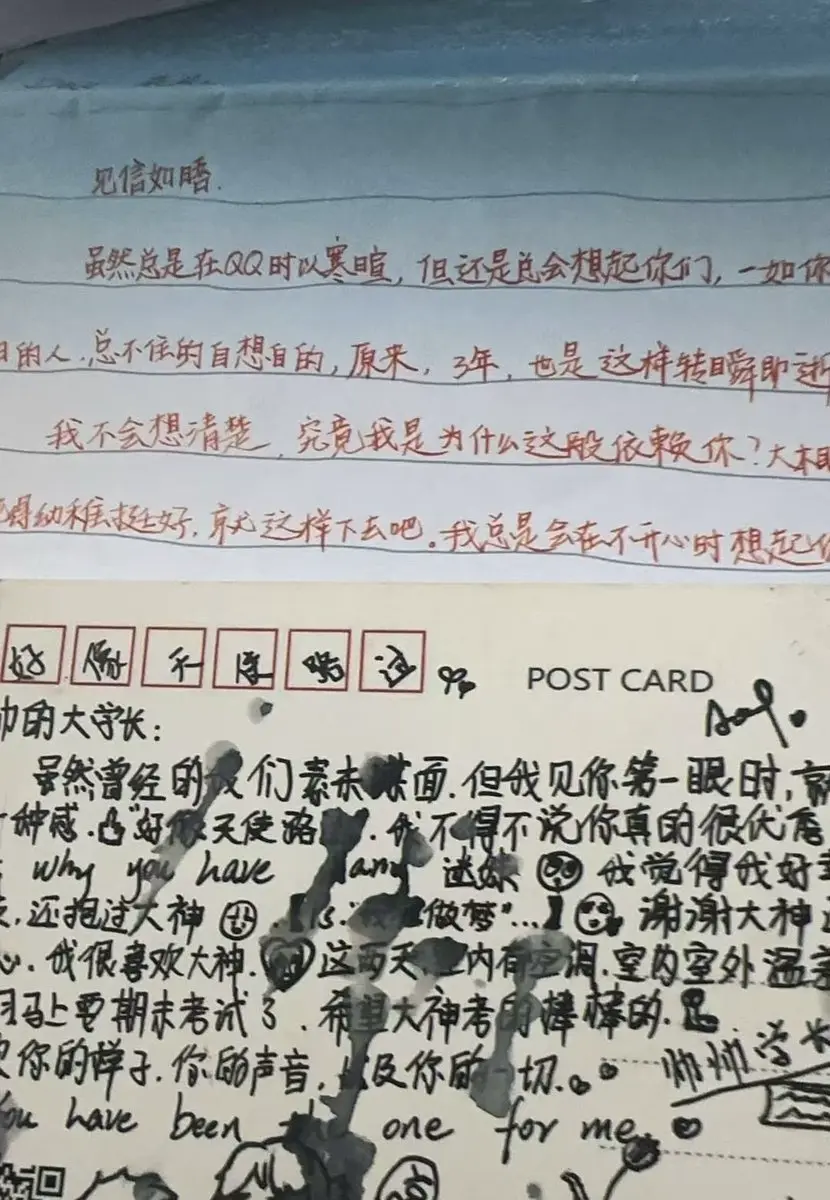 见信如晤.
虽然总是在QQ时以寒暄,但还是总会想起你们,一如你
的人.总不住的自想自的,原来,3年,也是这样转瞬即逝
我不会想清楚,究竟我是为什么这般依赖你?大
幼稚挺好,就这样下去吧。我总是会在不开心时想起
好像天使路过
POST CARD
帅的大学长:
虽然曾经的我们素未谋面.但我见你第一眼时,
种感.凸"好像天使路 .我不得不说你真的很优
why you have 迷妹 我觉得我好
,还抱过大神 .【is."我在做梦"...】 谢谢大神
心.我很喜欢大神. 这两天,室内有空调.室内室外温
马上要期末考试了.希望大神考的棒棒的.
你的样子.你的声音,以及你的一切.
帅帅学长
You have been the one for me.